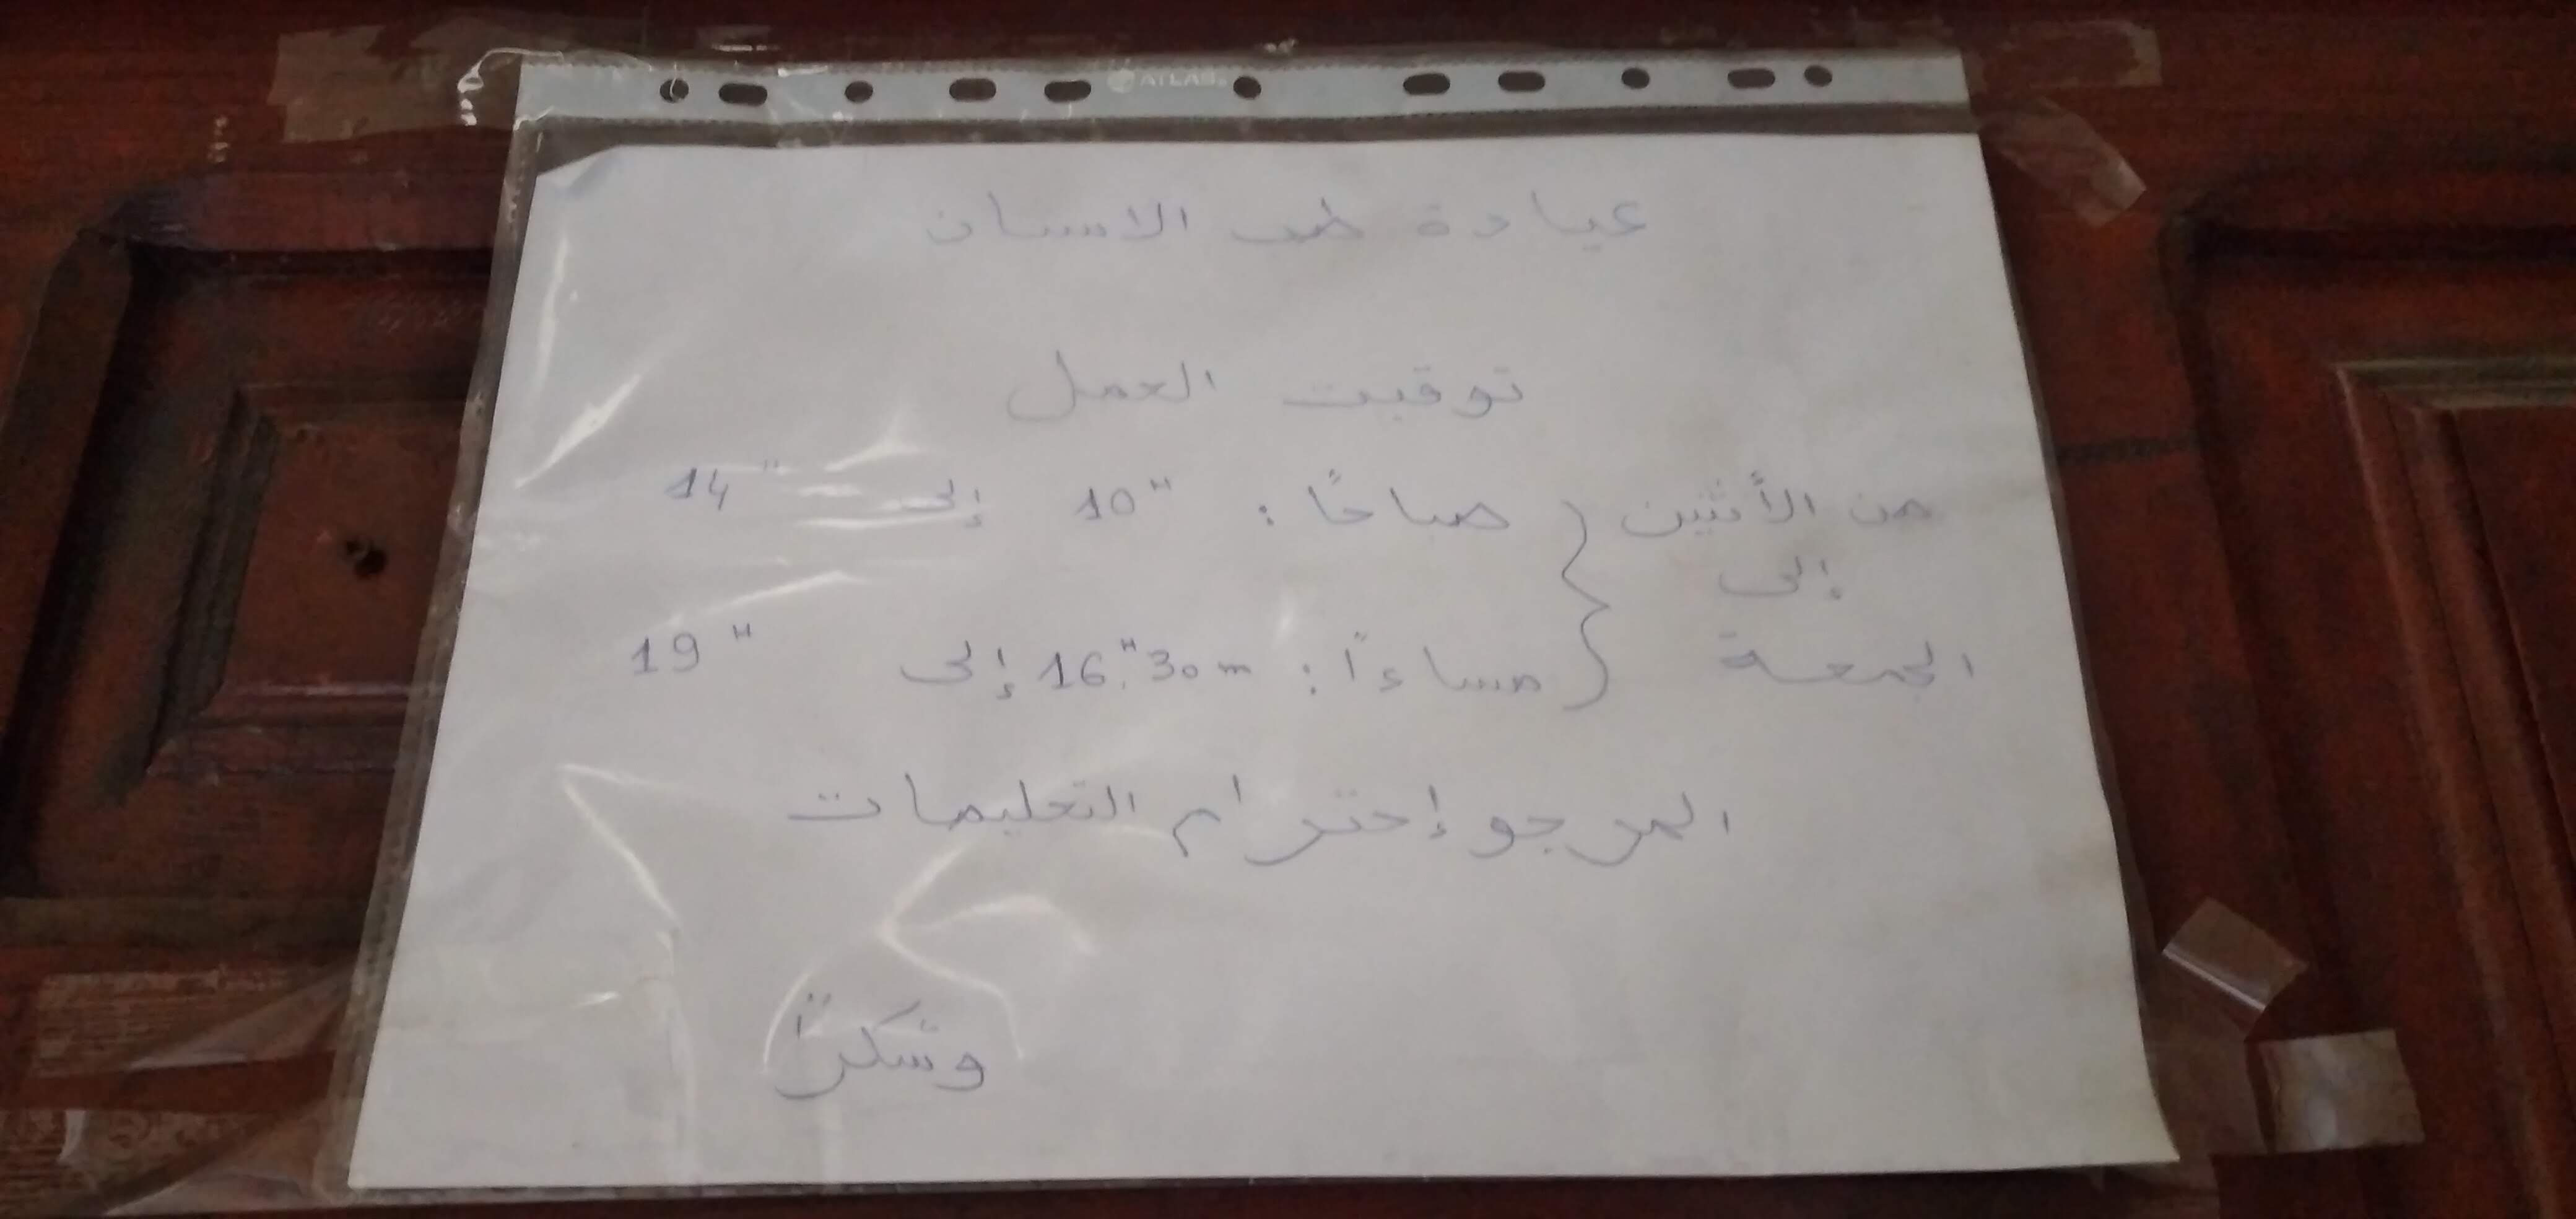 ATLAS
عيادة طب الاسنان
توقيت العمل
من الأثنين
إلى
الجمعة
صباحًا : 10H إلى 14H
مساءًا : 16H.30m إلى 19H
المرجو إحترام التعليمات
وشكرًا